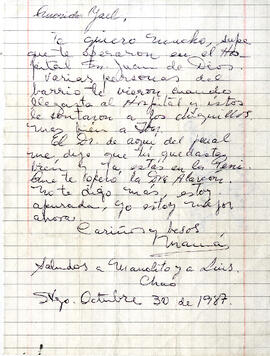 Querido Yael,
Te quiero mucho, supe
que te operaron en el Hos-
pital Sn. Juan de Dios.
Varias personas del
barrio te vieron cuando
llegaste al Hospital y estos
le contaron a los chiquillos.
mas bien a
El Dr. de aquí del penal
me dijo que tú quedaste
bien y ya estás en la Peni.
que te operó la Dra Alarcón.
No te digo más, estoy
apurada, yo estoy mejor
ahora.
Cariños y besos
Mamá
Saludos a Manolito y a Luis.
Chao
Stgo. Octubre 30 de 1987.